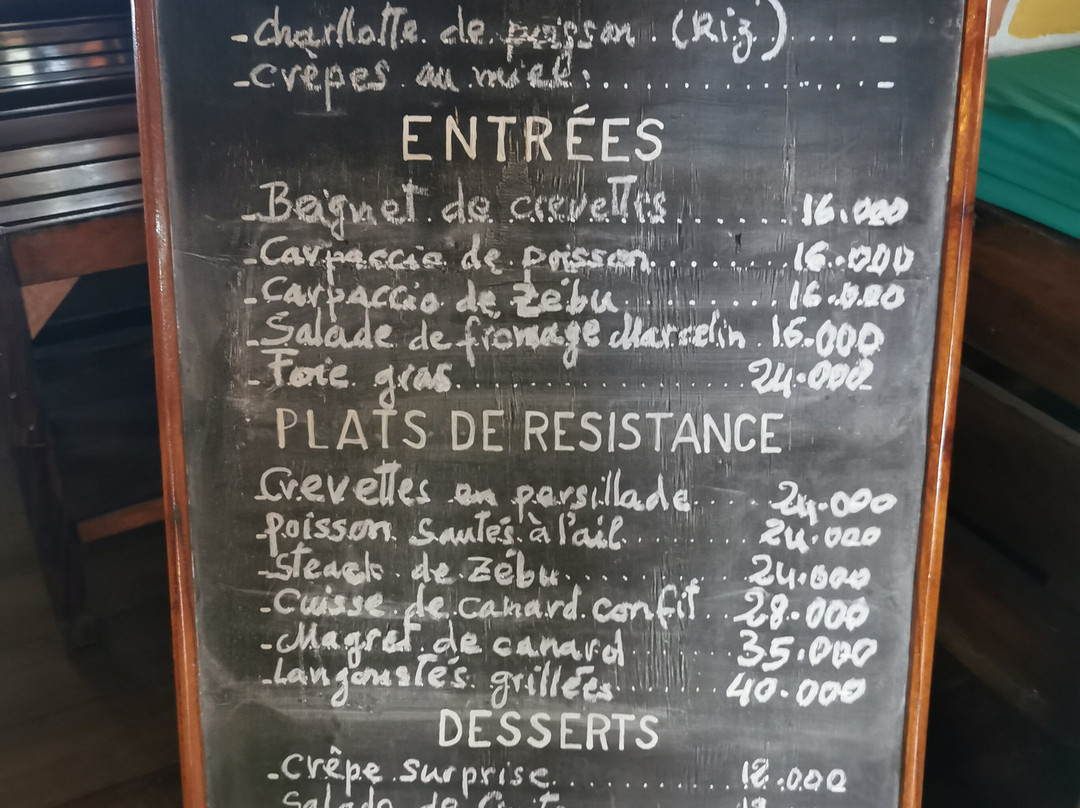 - Charllotte de poisson. (Riz)..... -
- crêpes au miel:............... -
ENTRÉES
- Beignet de crevettes....... 16.000
- Carpaccio de poisson........ 16.000
- Carpaccio de Zébu.......... 16.000
- Salade de fromage Marcelin. 16.000
- Foie gras.................. 24.000
PLATS DE RESISTANCE
. Crevettes en persillade..... 24.000
- poisson sautés à l'ail....... 24.000
- Steack de Zébu............ 24.000
- Cuisse de canard confit.. 28.000
- Magret de canard........ 35.000
- Langoustes grillées....... 40.000
DESSERTS
- Crêpe surprise........... 12.000
Salade de